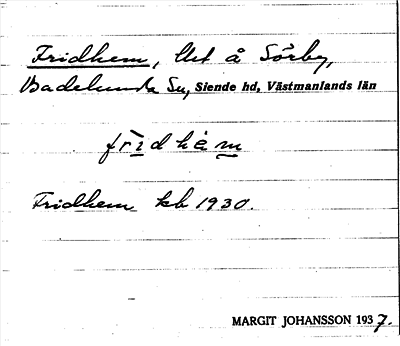 Fridhem, lht å Sörby,
Badelunda Sn, Siende hd, Västmanlands län
frìdhèm
Fridhem kb 1930.
MARGIT JOHANSSON 1937.